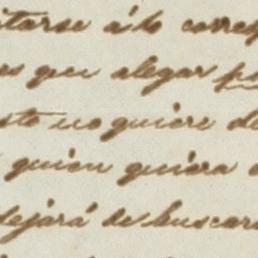 itarse á lo corresp
es que alegar po
sto no quiere de
quien quiera
dejará de buscar